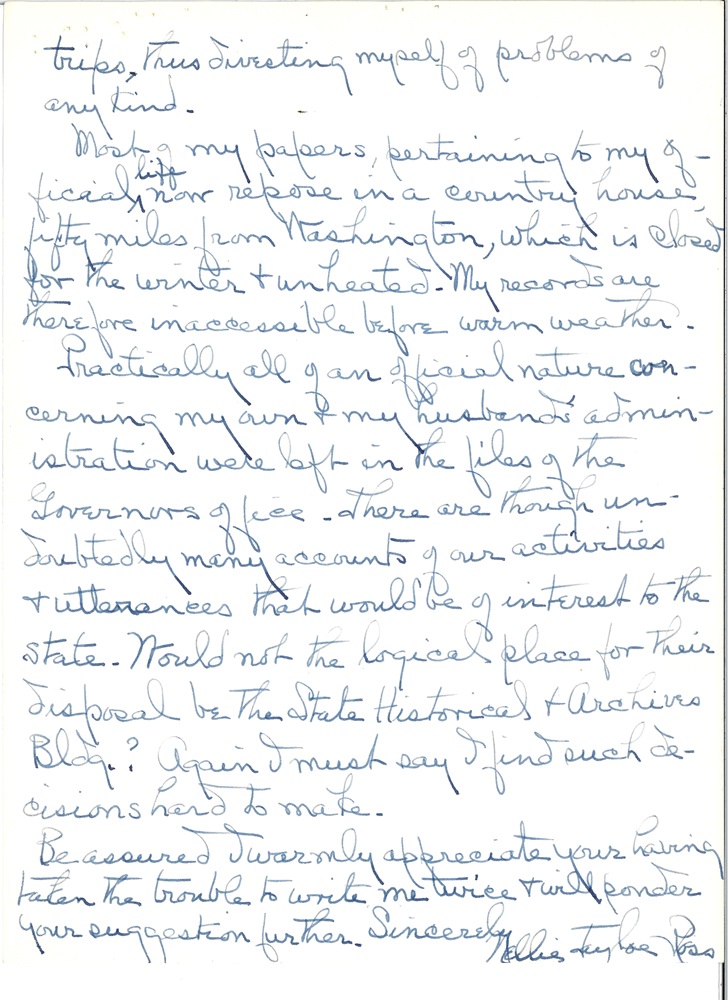 trips, thus divesting myself of problems of
any kind.
Most of my papers, pertaining to my of-
ficial life now repose in a country house,
fifty miles from Washington, which is closed
for the winter & unheated. My records are
therefore inaccessible before warm weather.
Practically all of an official nature con-
cerning my own & my husband's admin-
istration were left in the files of the
Governors office. There are though un-
doubtedly many accounts of our activities
& utterances that would be of interest to the
State. Would not the logical place for their
disposal be the State Historical & Archives
Bldg.? Again I must say I find such de-
cisions hard to make.
Be assured I warmly appreciate your having
taken the trouble to write me twice & will ponder
your suggestion further. Sincerely,
Nellie Tayloe Ross